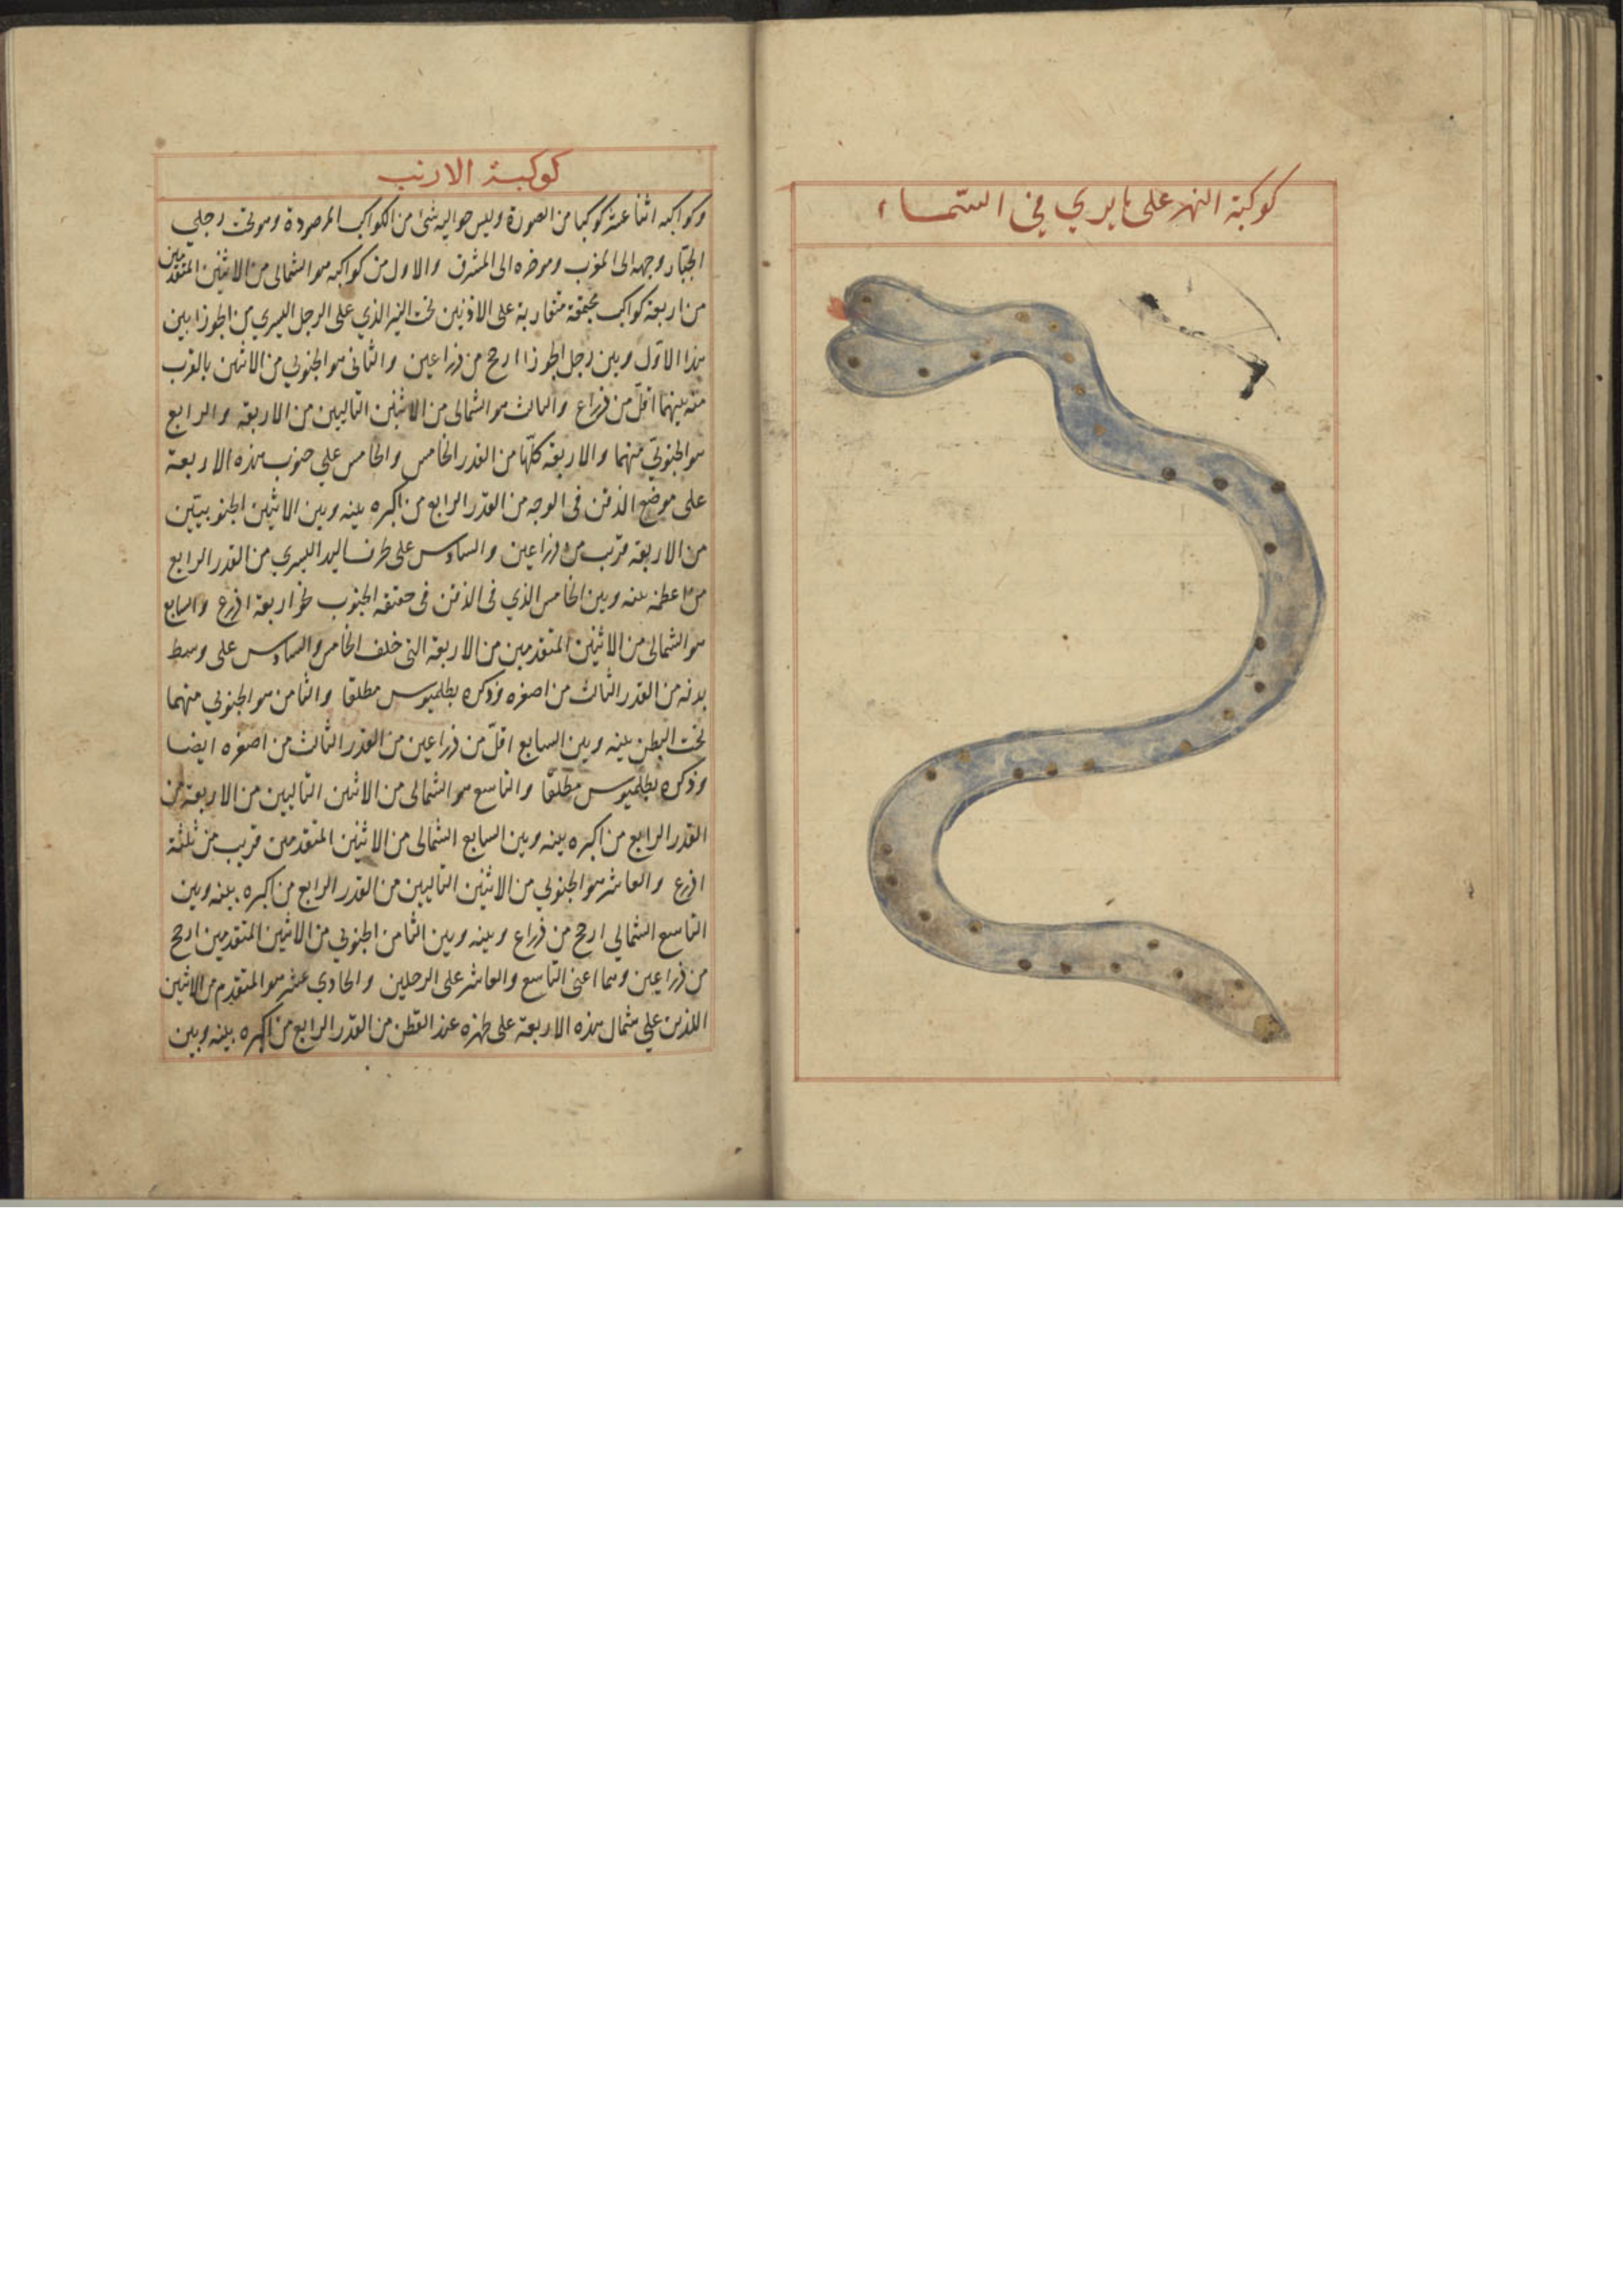 كوكبة النهر على ما يرى في السّماء
كوكبة الارنب
وكواكبه اثنا عشر كوكبا من الصورة وليس حواليه شئ من الكواكب المرصودة وهو تحت رجلي
الجبّار وجهه الى المغرب وموخره الى المشرق والاول من كواكبه هو الشمالى من الاثنين المتقدمين
من اربعة كواكب مجتمعة متقاربة على الاذنين تحت النير الذي على الرجل اليسري من الجوزا بين
هذا الاوّل وبين رجل الجوزا ارجح من ذراعين والثانى هو الجنوبي من الاثنين بالقرب
منه بينهما اقلّ من ذراع والثالث هو الشمالى من الاثنين التاليين من الاربعة والرابع
هو الجنوبيّ منهما والاربعة كلّها من القدر الخامس والخامس علي جنوب هذه الاربعة
على موضع الذقن فى الوجه من القدر الرابع من اكبره بينه وبين الاثنين الجنوبيين
من الاربعة قريب من ذراعين والسادس على طرف اليد اليسري من القدر الرابع
من اعظمه بينه وبين الخامس الذي فى الذقن فى حقيقة الجنوب نحو اربعة اذرع والسابع
هو الشمالى من الاثنين المتقدمين من الاربعة التى خلف الخامس والسادس على وسط
بدنه من القدر الثالث من اصغره وذكره بطلميوس مطلقا والثامن هو الجنوبي منهما
تحت البطن بينه وبين السابع اقلّ من ذراعين من القدر الثالث من اصغره ايضا
وذكره بطلميوس مطلقا والتاسع هو الشمالى من الاثنين التاليين من الاربعة من
القدر الرابع من اكبره بينه وبين السابع الشمالى من الاثنين المتقدمين قريب من ثلثة
اذرع والعاشر هو الجنوبي من الاثنين التاليين من القدر الرابع من اكبره بينه وبين
التاسع الشمالي ارجح من ذراع وبينه وبين الثامن الجنوبي من الاثنين المتقدمين ارجح
من ذراعين وهما اعنى التاسع والعاشر على الرجلين والحادي عشر هو المتقدم من الاثنين
اللذين علي شمال هذه الاربعة على ظهره عند القطن من القدر الرابع من اكبره بينه وبين